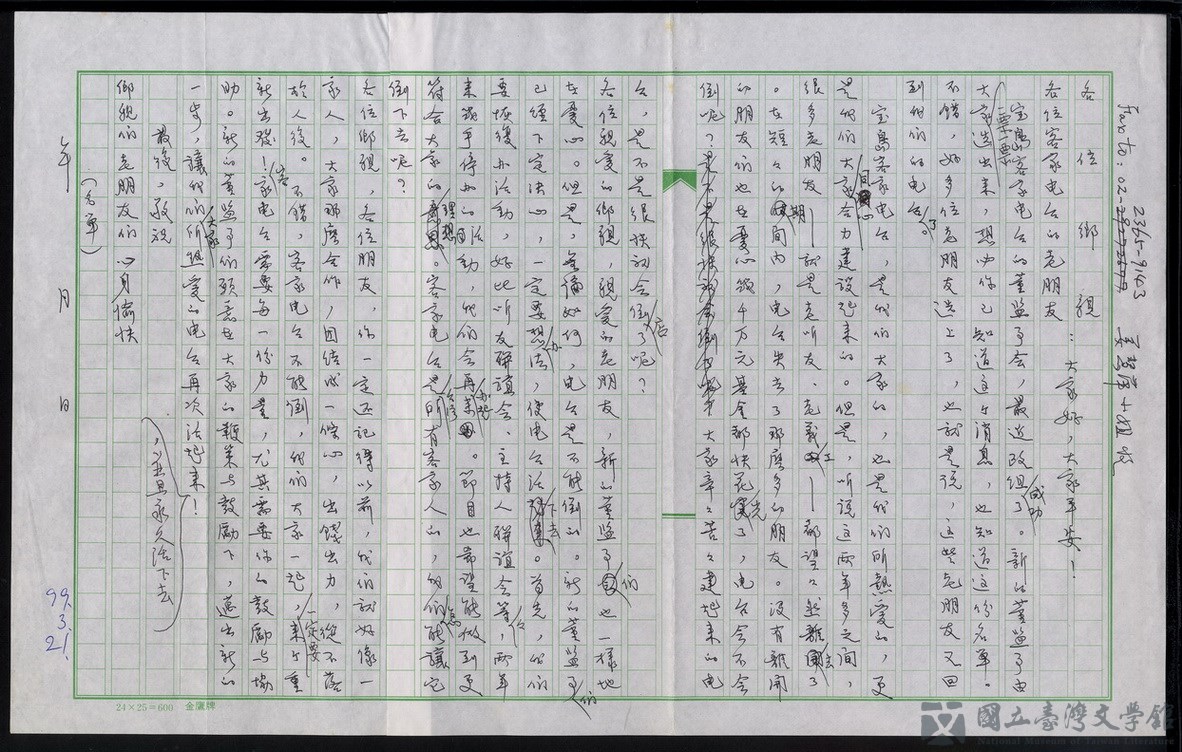 Fax to：02-2365-9143
各位鄉親：大家好，大家平安！
各位客家電台的老朋友
寶島客家電台的董監事会，最近改組成功了。新的董監事由
大家一票一票選出来，想必你已知道這个消息，也知道這份名單。
不錯，好多位老朋友選上了，也就是說，這些老朋友又回
到我們的電台了。
寶島客家電台，是我们大家的，也是我們所熱愛的，更
是我们大家合力建設起来的。但是，听説這兩年多之間，
很多老朋友——就是老听友、老義工——都望々然離去了
。在短々的期间內，電台失去了那麼多的朋友。沒有離開
的朋友们也在憂心數千万元基金都快花光了，電台会不会
倒呢？大家辛々苦々建起来的電
台，是不是很快就会倒店了呢？
各位親愛的鄉親，親愛的老朋友，新的董監事们也一樣地
在憂心。但是，無論如何，電台是不能倒的。新的董監事们
已經下定決心，一定要想办法，使電台活下去。首先，我们
要恢復办活動，好比听友聯誼会、主持人聯誼会等，兩年
来幾乎停的活動，我们会再來办起。節目也希望能做到更
符合大家的理想。客家電台是所有客家人的，我們能讓它
倒下去呢？
各位鄉親，各位朋友，你一定还記得以前，我们就好像一
家人，大家那麼合作，団結成一條心，出錢出力，從不落
於人後。不錯，客家電台不能倒，我们大家一起，一定要來个重
新出發！客家电台需要每一份力量，尤其需要你的鼓勵与協
助。新的董監事们願意在大家的鞭策与鼓勵下，邁出新的
一步，讓我们大家所熱愛的电台再次活起来！
，並且永久活下去
最後，敬祝
鄉親们的老朋友们 心身愉快
（名單）
年　月　日
99.3.21.
24×25=600 金鷹牌
國立臺灣文學館
National Museum of Taiwan Literature